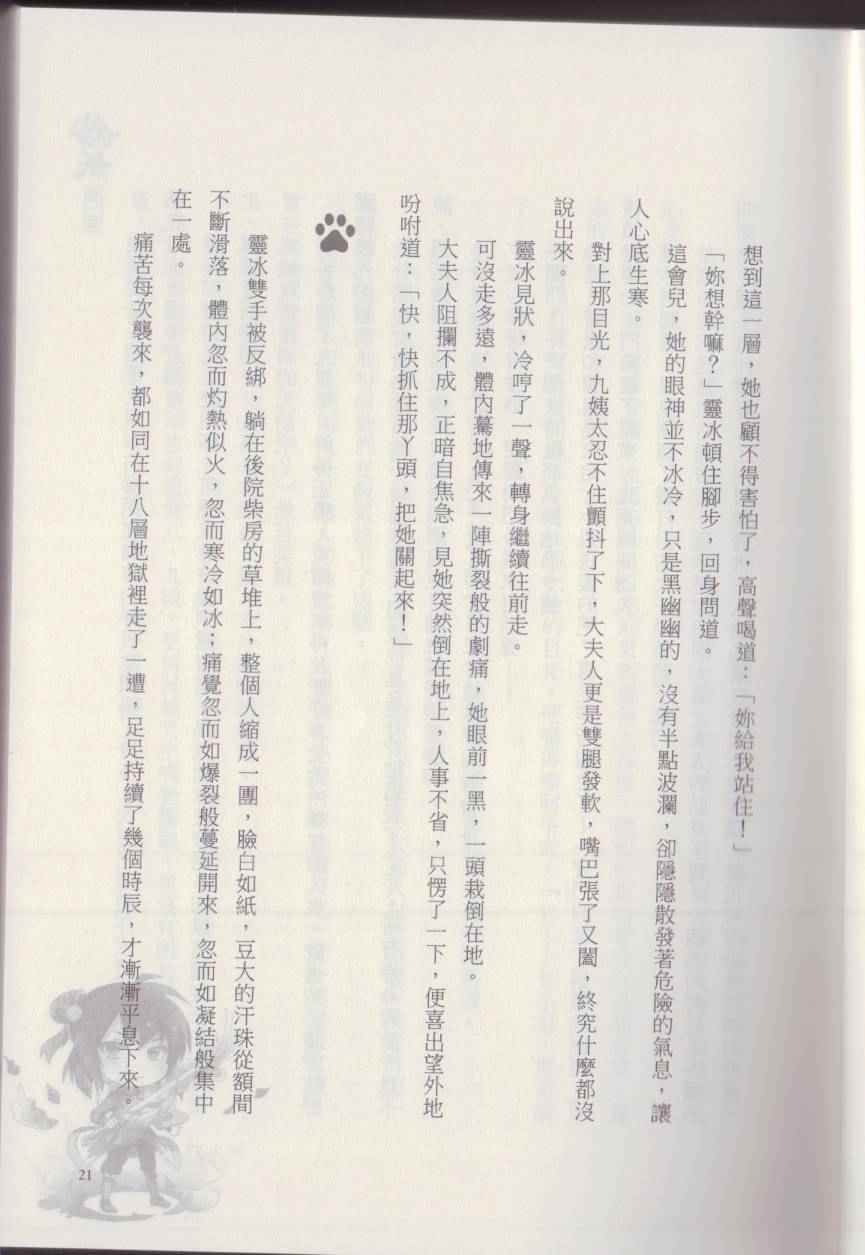 想到這一層，她也顧不得害怕了，高聲喝道：「妳給我站住！」
「妳想幹嘛？」靈冰頓住腳步，回身問道。
這會兒，她的眼神並不冰冷，只是黑幽幽的，沒有半點波瀾，卻隱隱散發著危險的氣息，讓
人心底生寒。
對上那目光，九姨太忍不住顫抖了下，大夫人更是雙腿發軟，嘴巴張了又闔，終究什麼都沒
說出來。
靈冰見狀，冷哼了一聲，轉身繼續往前走。
可沒走多遠，體內驀地傳來一陣撕裂般的劇痛，她眼前一黑，一頭栽倒在地。
大夫人阻攔不成，正暗自焦急，見她突然倒在地上，人事不省，只愣了一下，便喜出望外地
吩咐道：「快，快抓住那丫頭，把她關起來！」
靈冰雙手被反綁，躺在後院柴房的草堆上，整個人縮成一團，臉白如紙，豆大的汗珠從額間
不斷滑落，體內忽而灼熱似火，忽而寒冷如冰；痛覺忽而如爆裂般蔓延開來，忽而如凝結般集中
在一處。
痛苦每次襲來，都如同在十八層地獄裡走了一遭，足足持續了幾個時辰，才漸漸平息下來。
21